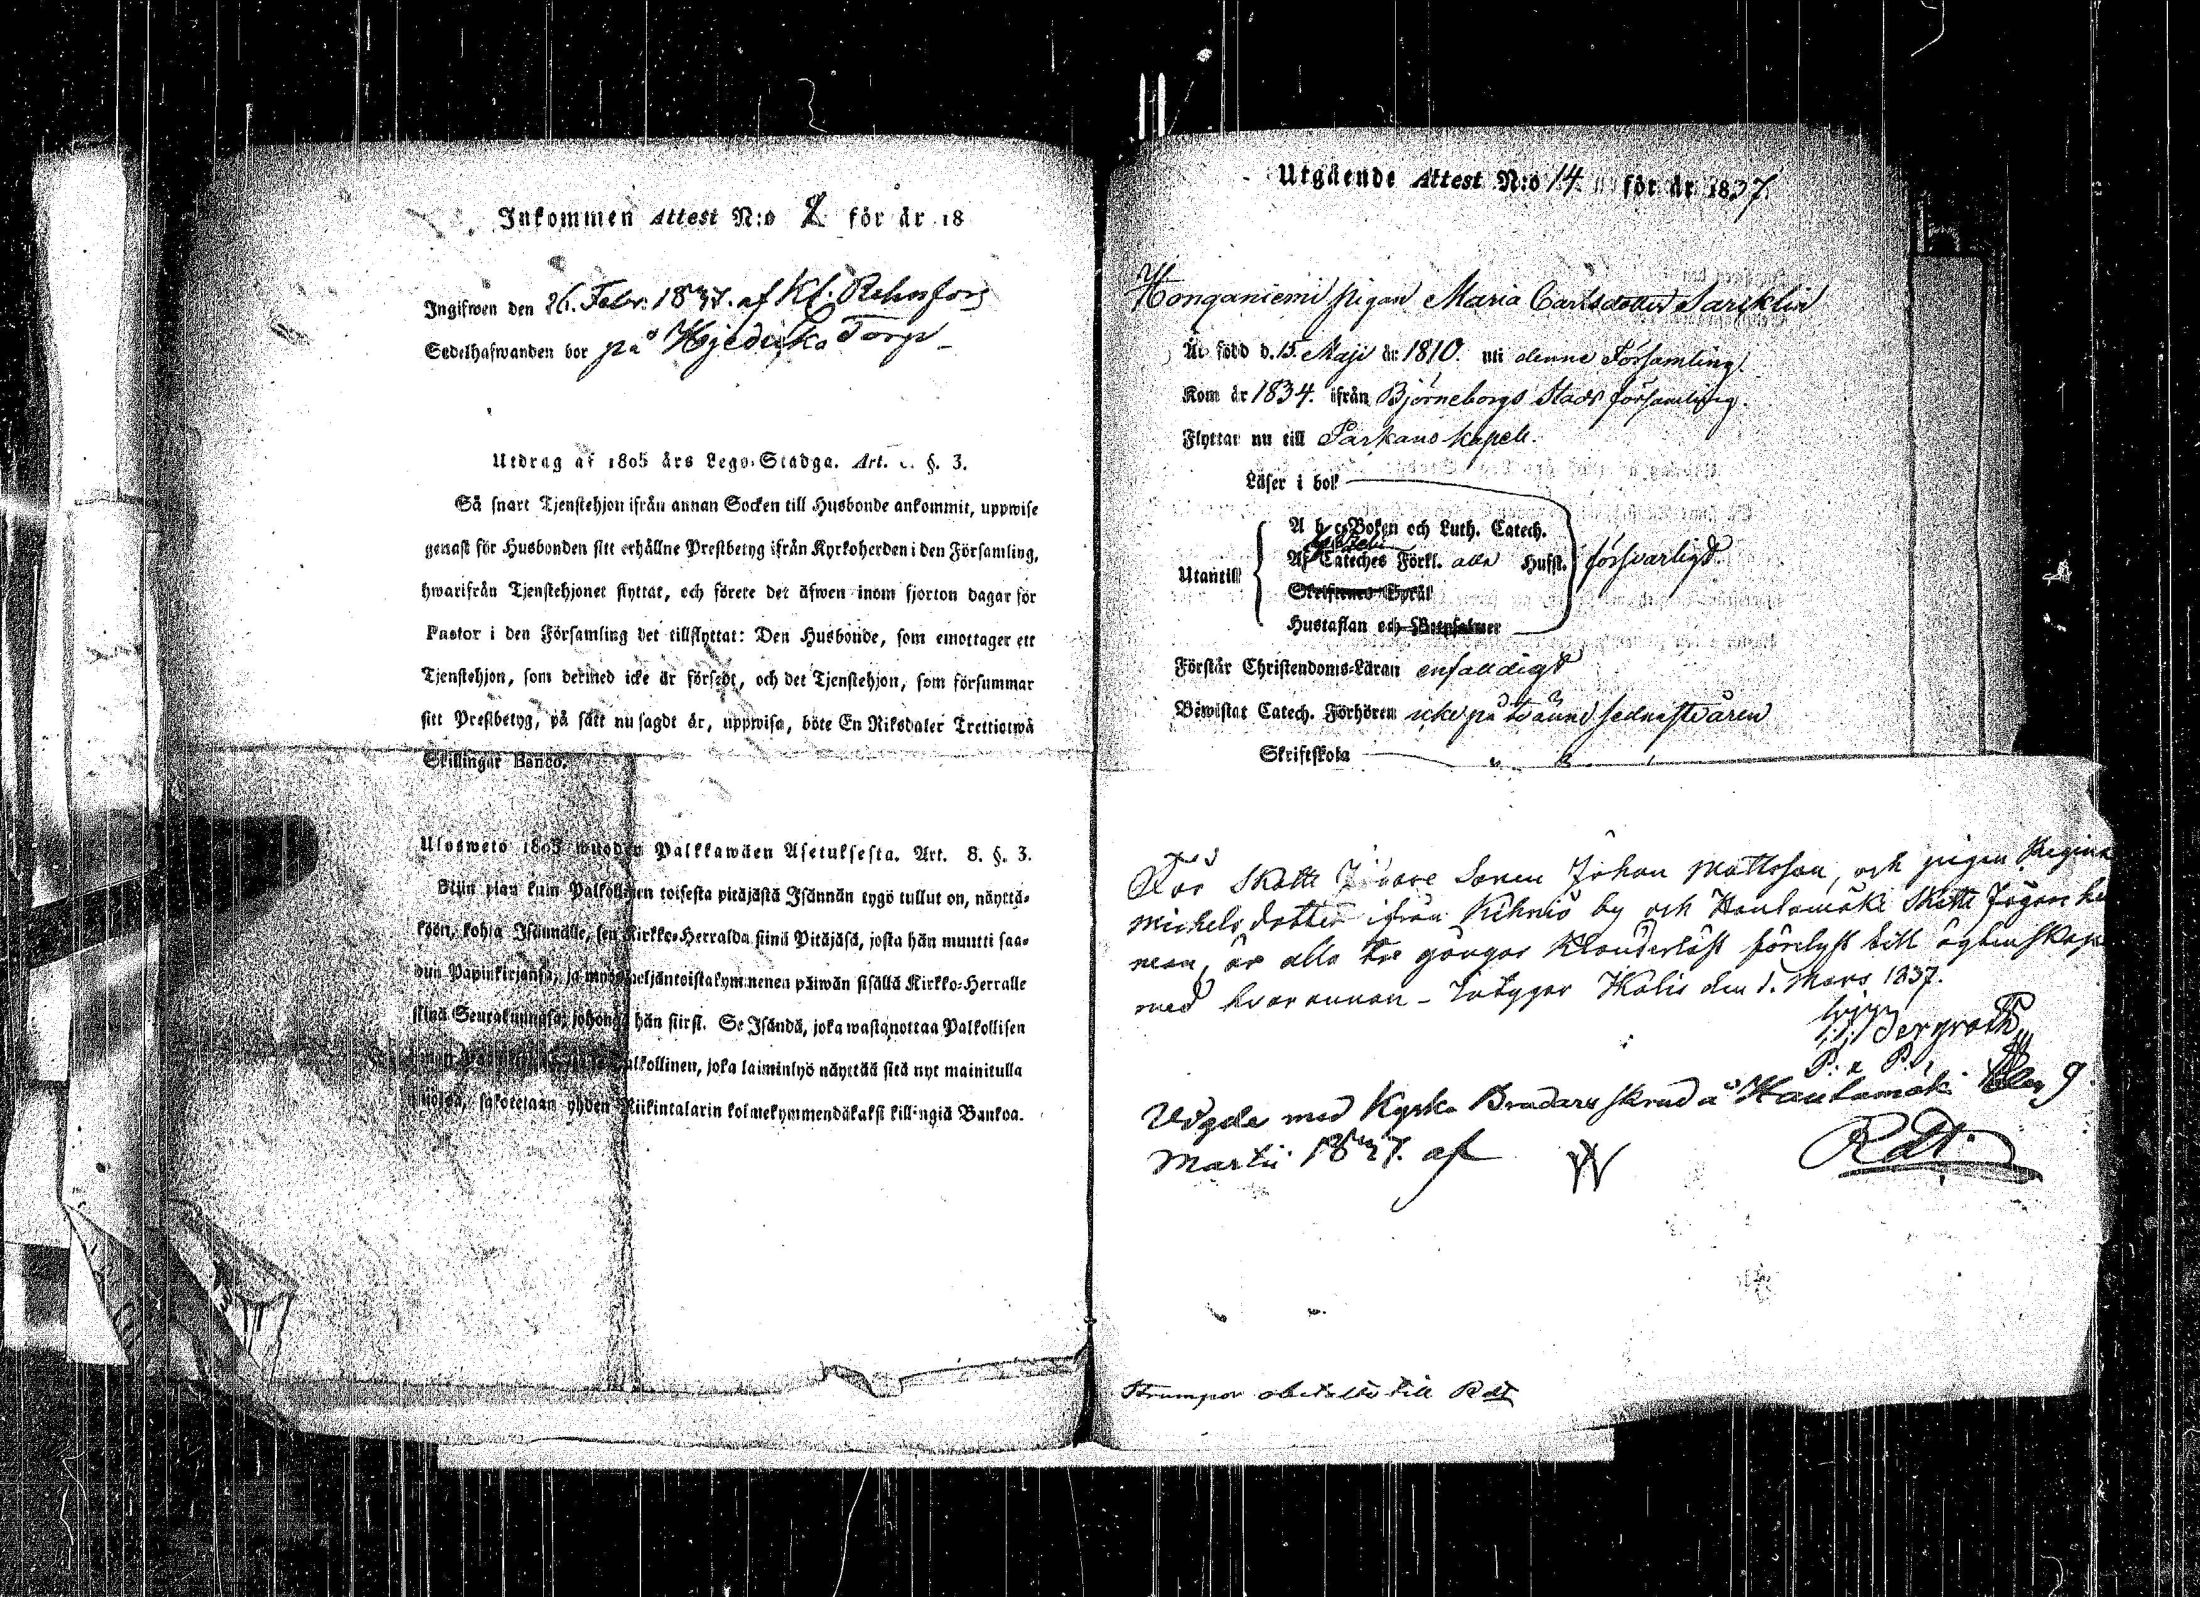 Inkommen Attest N:o 2 för år 18
Ingifwen den 26. Febr. 1837. af Kl. Rehnfors
Sedelhafwanden bor på Torp
Utdrag af 1805 års Lego-Stadga. Art. §. 3.
Så snart Tjenstehjon ifrån annan Socken till Husbonde ankommit, uppwise
genast för Husbonden sitt erhållne Prestbetyg ifrån Kyrkoherden i den Församling,
hwarifrån Tjenstehjonet flyttat, och förete det äfwen inom fjorton dagar för
Pastor i den Församling det tillflyttat: Den Husbonde, som emottager ett
Tjenstehjon, som dermed icke är försedt, och det Tjenstehjon, som försummar
sitt Prestbetyg, på sätt nu sagdt är, uppwisa, böte En Riksdaler Trettiotwå
Skillingar Banco.
Ulosweto 1805 wuoden Palkkawäen Asetuksesta. Art. 8. §. 3.
Niin pian kuin Palkollinen toisesta pitäjästä Isännän tygö tullut on, näyttä-
köön, kohta Isännälle, sen Kirkko-Herralda siinä Pitäjäsä, josta hän muutti saa-
dun Papinkirjansa, ja myös neljäntoistakymmenen päiwän sisällä Kirkko-Herralle
siinä Seurakunnasa, johonga hän siirsi. Se Isändä, joka wastanottaa Palkollisen
Palkollinen, joka laiminlyö näyttää sitä nyt mainitulla
sakotetaan yhden Riikintalarin kolmekymmendäkaksi killingiä Bankoa.
Utgående Attest N:o 14. för år 1837.
Honganiemi pigan Maria Carlsdotter
Är född d. 15. Maji år 1810. uti denne Församling.
Kom år 1834. ifrån Björneborgs Stads församling.
Flyttar nu till Parkano kapell.
Läser i bok
A b c-Boken och Luth. Catech.
Utantill Af Cateches Förkl. alla Hufst. försvarligt.
Skriftenes Språk
Hustaflan och
Förstår Christendoms-Läran enfaldigt
Bewistat Catech. Förhören icke på tvänne sednaste åren
Skriftskola " "
För Skatte Sonen Johan Mattsson, och pigan Regina
Michelsdotter ifrån Kihniö by och Hautamäki Skatte
man, är alla tre gångor klanderlöst förelyst till ägtenskap
med hvar annan - intygar Kålis den 1. Mars 1837.
Bergroth
P. a P.
Vigde med Kyrko Brudars skrud å Hautamäki den 9.
Martii 1837. af
Rdt.
Strumpor obetalte till Rdt